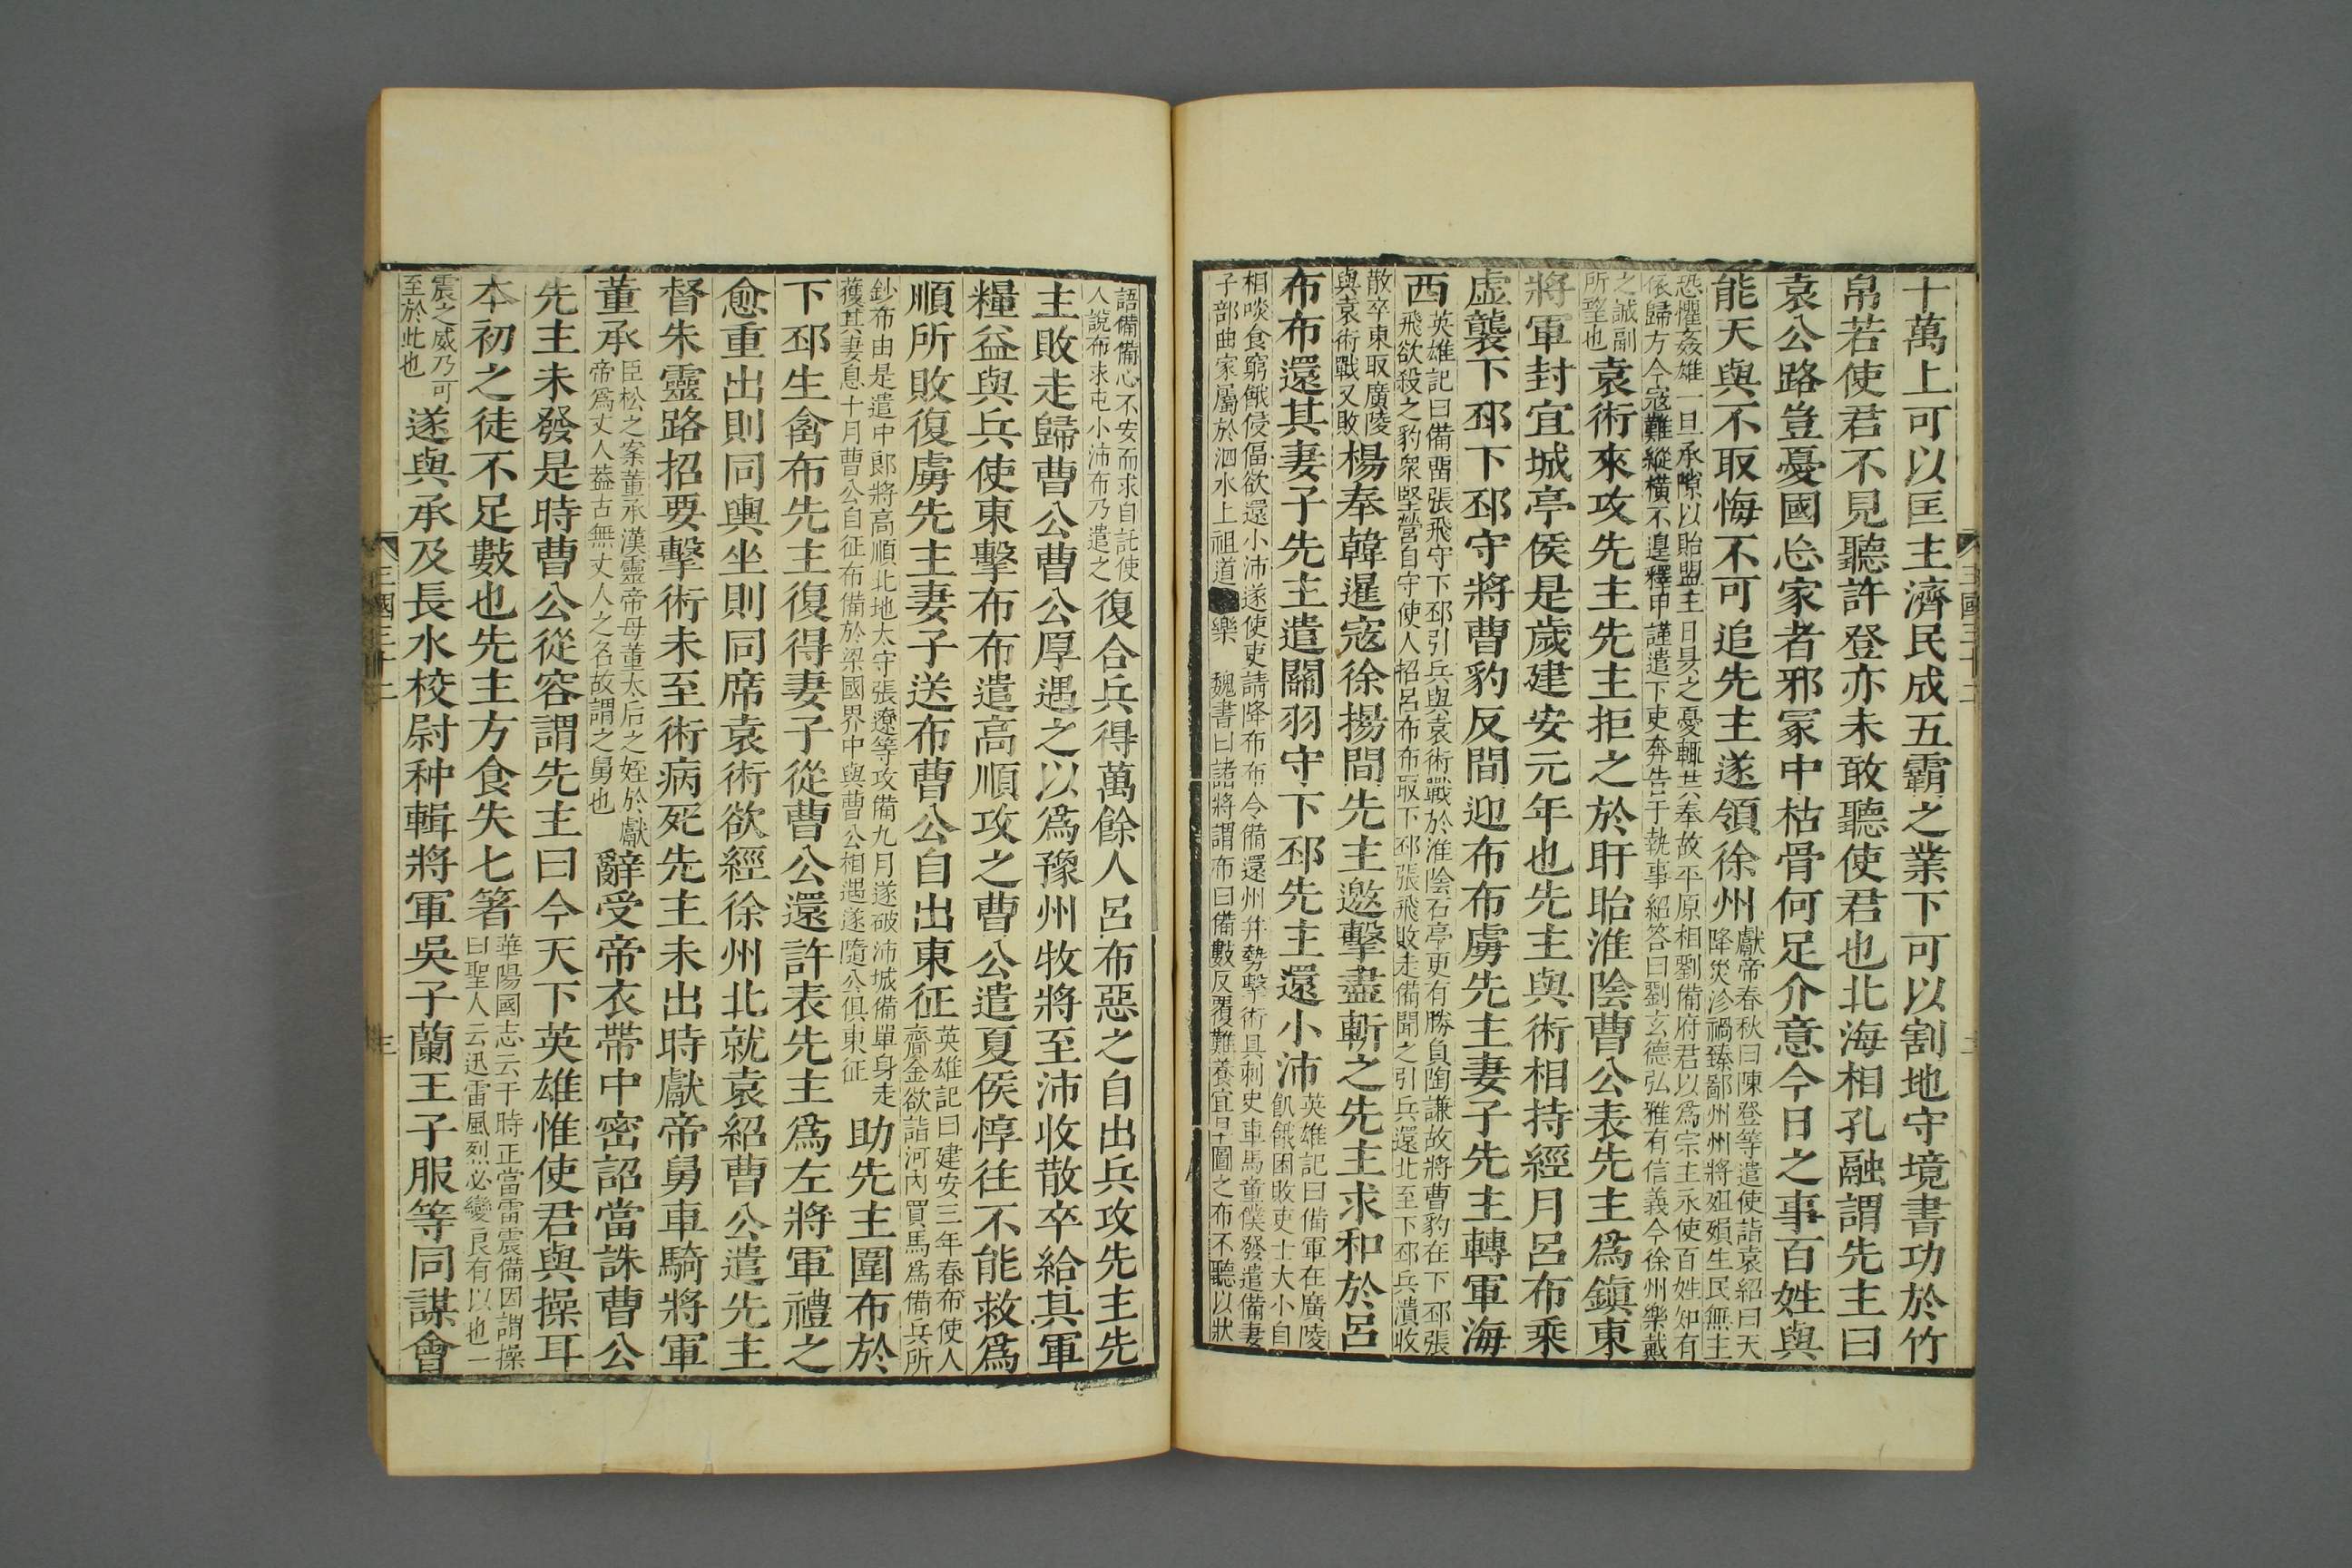 十萬上可以匡主濟民成五霸之業下可以割地守境書功於竹
帛若使君不見聽許登亦未敢聽使君也北海相孔融謂先主曰
袁公路豈憂國忘家者邪冢中枯骨何足介意今日之事百姓與
能天與不取悔不可追先主遂領徐州
獻帝春秋曰陳登等遣使詣袁紹曰天
降災沴禍臻鄙州州將殂殞生民無主
恐懼姦雄一旦承隙以貽盟主日昃之憂輒共奉故平原相劉備府君以爲宗主永使百姓知有
依歸方今寇難縱橫不遑釋甲謹遣下吏奔告于執事紹答曰劉玄德弘雅有信義今徐州樂戴
之誠副
所望也
袁術來攻先主先主拒之於盱眙淮陰曹公表先主爲鎭東
將軍封宜城亭侯是歲建安元年也先主與術相持經月呂布乘
虛襲下邳下邳守將曹豹反間迎布布虜先主妻子先主轉軍海
西
英雄記曰備留張飛守下邳引兵與袁術戰於淮陰石亭更有勝負陶謙故將曹豹在下邳張
飛欲殺之豹衆堅營自守使人招呂布布取下邳張飛敗走備聞之引兵還北至下邳兵潰收
散卒東取廣陵
與袁術戰又敗
楊奉韓暹寇徐揚間先主邀擊盡斬之先主求和於呂
布布還其妻子先主遣關羽守下邳先主還小沛
英雄記曰備軍在廣陵
飢餓困敗吏士大小自
相啖食窮餓侵偪欲還小沛遂使吏請降布布令備還州幷勢擊術具刺史車馬童僕發遣備妻
子部曲家屬於泗水上祖道樂 魏書曰諸將謂布曰備數反覆難養宜早圖之布不聽以狀
語備備心不安而求自託使
人說布求屯小沛布乃遣之
復合兵得萬餘人呂布惡之自出兵攻先主先
主敗走歸曹公曹公厚遇之以爲豫州牧將至沛收散卒給其軍
糧益與兵使東擊布布遣高順攻之曹公遣夏侯惇往不能救爲
順所敗復虜先主妻子送布曹公自出東征
英雄記曰建安三年春布使人
齎金欲詣河內買馬爲備兵所
鈔布由是遣中郎將高順北地太守張遼等攻備九月遂破沛城備單身走
獲其妻息十月曹公自征布備於梁國界中與曹公相遇遂隨公俱東征
助先主圍布於
下邳生禽布先主復得妻子從曹公還許表先主爲左將軍禮之
愈重出則同輿坐則同席袁術欲經徐州北就袁紹曹公遣先主
督朱靈路招要擊術未至術病死先主未出時獻帝舅車騎將軍
董承
臣松之案董承漢靈帝母董太后之姪於獻
帝爲丈人蓋古無丈人之名故謂之舅也
辭受帝衣帶中密詔當誅曹公
先主未發是時曹公從容謂先主曰今天下英雄惟使君與操耳
本初之徒不足數也先主方食失匕箸
華陽國志云于時正當雷震備因謂操
曰聖人云迅雷風烈必變良有以也一
震之威乃可
至於此也
遂與承及長水校尉种輯將軍吳子蘭王子服等同謀會
三國三十二